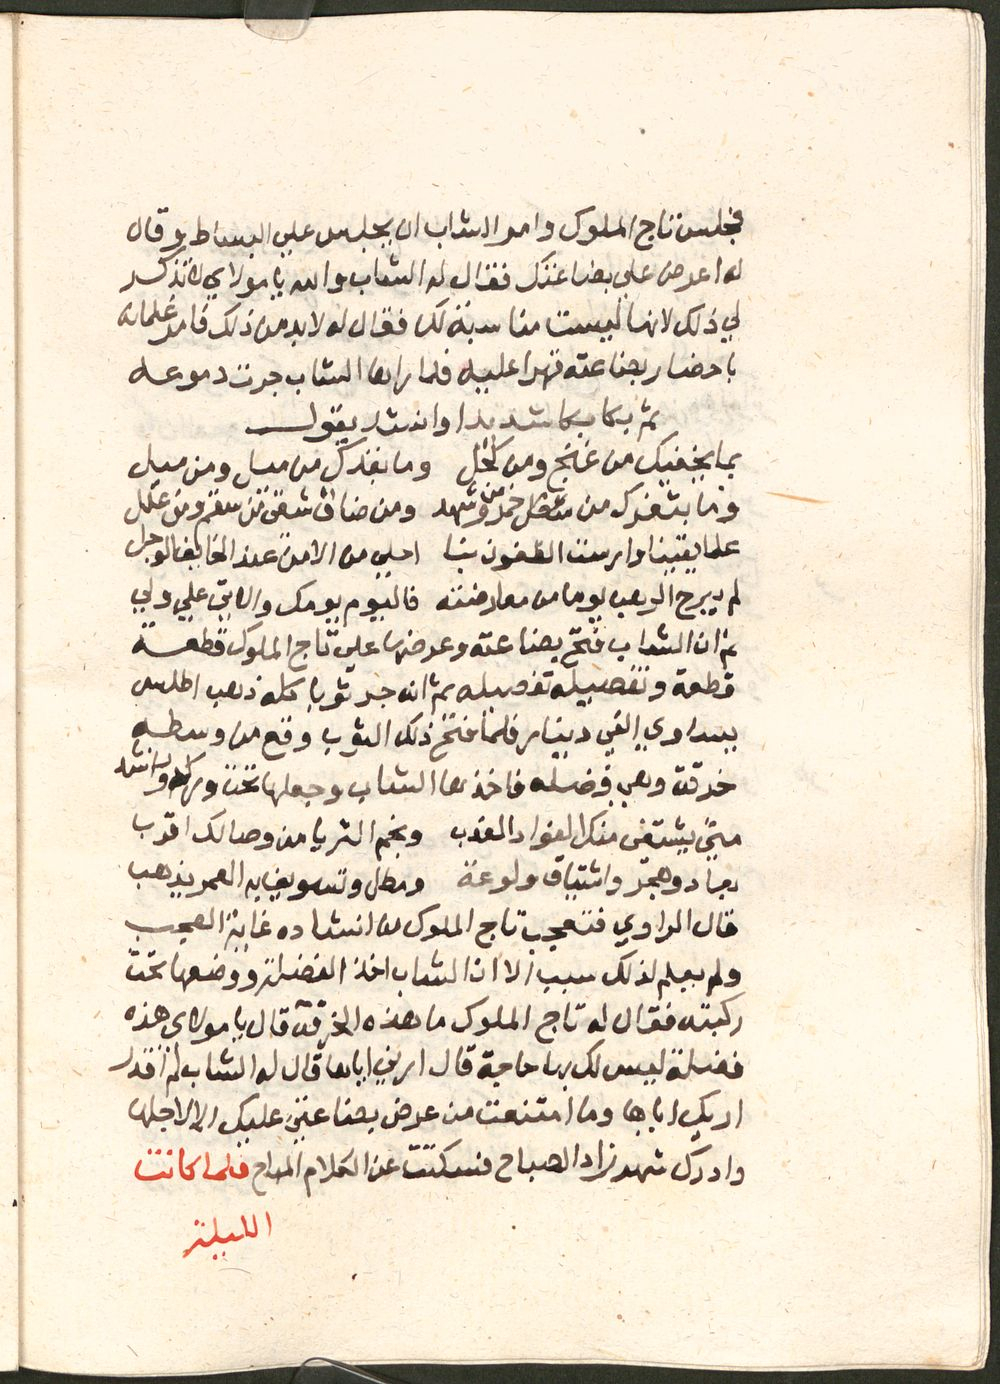 فجلس تاج الملوك وامر الشاب ان يجلس علي البساط وقال
له اعرض علي بضاعتك فقال له الشاب والله يا مولاي لا تذكر
لي ذلك لانها ليست مناسبة لك فقال له لابد من ذلك فامر غلمانه
باحضار بضاعته قهرا عليه فلما راها الشاب جرت دموعه
ثم بكا بكا شديدا وانشد يقول
بما بجفنيك من غنج ومن كحل وما بقدك من ميل ومن ميل
وما بثغرك من خمر ومن شهد ومن ضاق شفتي من سقم ومن علل
علما يقينا احلي من الامن عند الخايف الوجل
لم يبرح الدهر يوما من معارضته فاليوم يومك والاتي علي ولي
ثم ان الشاب فتح بضاعته وعرضها علي تاج الملوك قطعة
قطعة وتفصيله تفصيله ثم انه جر ثوبا كله ذهب اطلس
يساوي الفي دينار فلما فتح ذلك الثوب وقع من وسطه
خرقة وهي فضله فاخذها الشاب وجعلها تحت وركه وانشد
متي يشتفي منك الفواد المعذب ونجم الثريا من وصالك اقرب
بعاد وهجر واشتياق ولوعة ومطل وتسويف به العمر يذهب
قال الراوي فتعجب تاج الملوك من انشاده غاية العجب
ولم يعلم لذلك سبب الا ان الشاب اخذ الفضلة ووضعها تحت
ركبته فقال له تاج الملوك ما هذه الخرقة قال يا مولاى هذه
فضلة ليس لك بها حاجة قال اريني اياها قال له الشاب لم اقدر
اريك اياها وما امتنعت من عرض بضاعتي عليك الا لاجلها
وادرك شهرزاد الصباح فسكتت عن الكلام المباح فلما كانت
الليلة